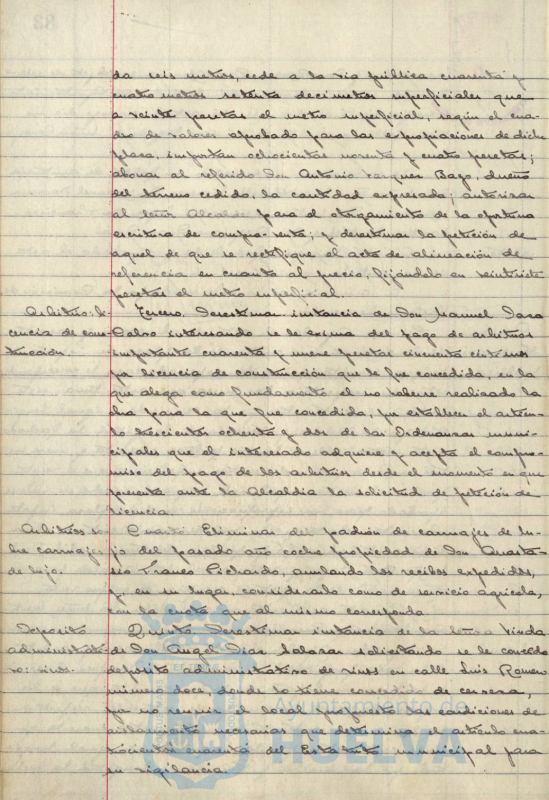 da seis metros, cede a la via pública cuarenta y
cuatro metros setenta decimetros superficiales que
a veinte pesetas el metro superficial, según el cua-
dro de valores aprobado para las expropiaciones de dicha
plaza, importan ochocientas noventa y cuatro pesetas;
abonar al referido Don Antonio Vazquez Bago, dueño
del terreno cedido, la cantidad expresada; autorizar
al Señor Alcalde para el otorgamiento de la oportuna
escritura de compra-venta; y desestimar la petición de
aquel de que se rectifique el acta de alineación de
referencia en cuanto al precio, fijándolo en veintisiete
pesetas el metro superficial.
Arbitrios: li-
cencia de cons-
trucción.
Tercero. Desestimar instancia de Don Manuel
Calvo interesando se le exima del pago de arbitrios
importante cuarenta y nueve pesetas cincuenta céntimos
por licencia de construcción que le fue concedida, en la
que alega como fundamento el no haberse realizado la
obra para la que fue concedida, pues establece el artícu-
lo trescientos ochenta y dos de las Ordenanzas muni-
cipales que el interesado adquiere y acepta el compro-
miso del pago de los arbitrios desde el momento en que
presenta ante la Alcaldia la solicitud de petición de
licencia.
Arbitrios so-
bre carruajes
de lujo.
Cuarto Eliminar del padrón de carruajes de lu-
jo del pasado año coche propiedad de Don Anasta-
sio Franco Pichardo, anulando los recibos expedidos,
y, en su lugar, considerarlo como de servicio agricola,
con la cuota que al mismo corresponda.
Depósito
administrati-
vo: vinos.
Quinto Desestimar instancia de la Señora Viuda
de Don Angel Diaz Salazar solicitando se le conceda
depósito administrativo de vinos en calle Luis Romero
número doce, donde lo tiene concedido de cerveza,
por no reunir el local propuesto las condiciones de
aislamiento necesarias que determina el artículo cua-
trocientos cuarenta del Estatuto municipal para
su vigilancia.
Ayuntamiento de
HUELVA